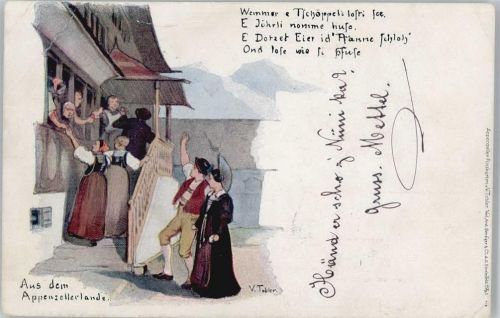 Wemmer e Tschäppeli losti see.
E Jöhrli nomme huse.
E Dotzet Eier id' Pfanne schloh'
Ond lose wie si pfuse
Händ er scho z' Nüni ka?
Gruss. Mettel.
V. Tobler.
Aus dem
Appenzellerlande.